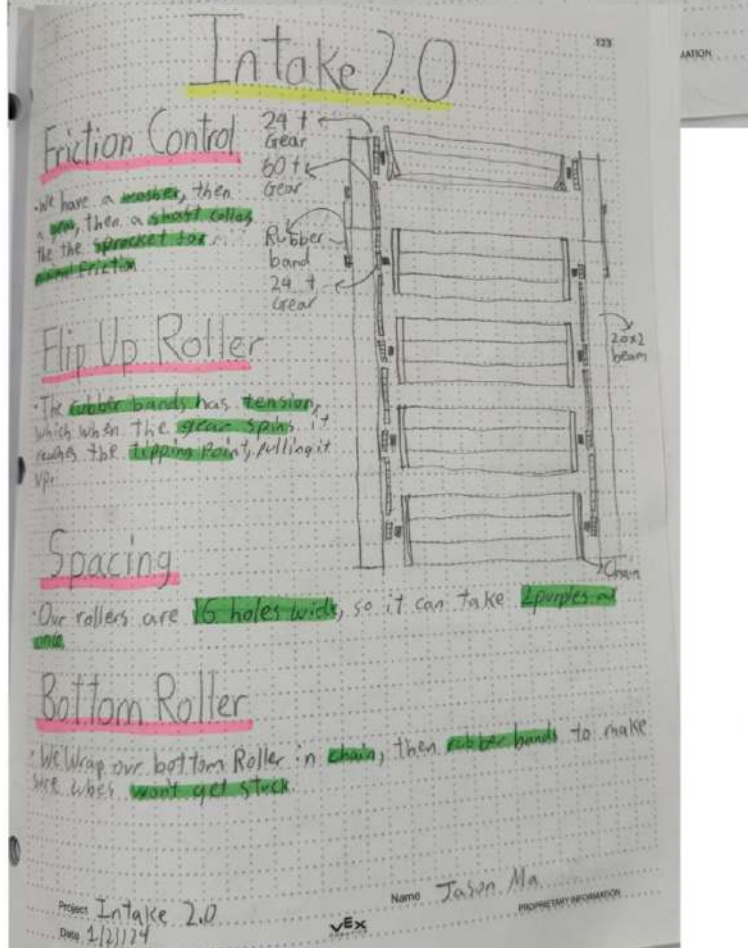 123
ATION
Intake 2.0
Friction Control
• We have a washer, then
a, then a shaft collar
the the sprocket for
friction
24 t
Gear
60 t
Gear
Rubber
band
24 t
Gear
20x2
beam
Chain
Flip Up Roller
• The rubber bands has tension,
which when the gear spins it
reaches the tipping point, pulling it
up.
Spacing
• Our rollers are 16 holes wide, so it can take 2 purples at
once
Bottom Roller
• We Wrap our bottom Roller in chain, then rubber bands to make
sure cubes wont get stuck.
Project Intake 2.0
Name Jason Ma
Date 1/2/24
VEX
ROBOTICS
PROPRIETARY INFORMATION